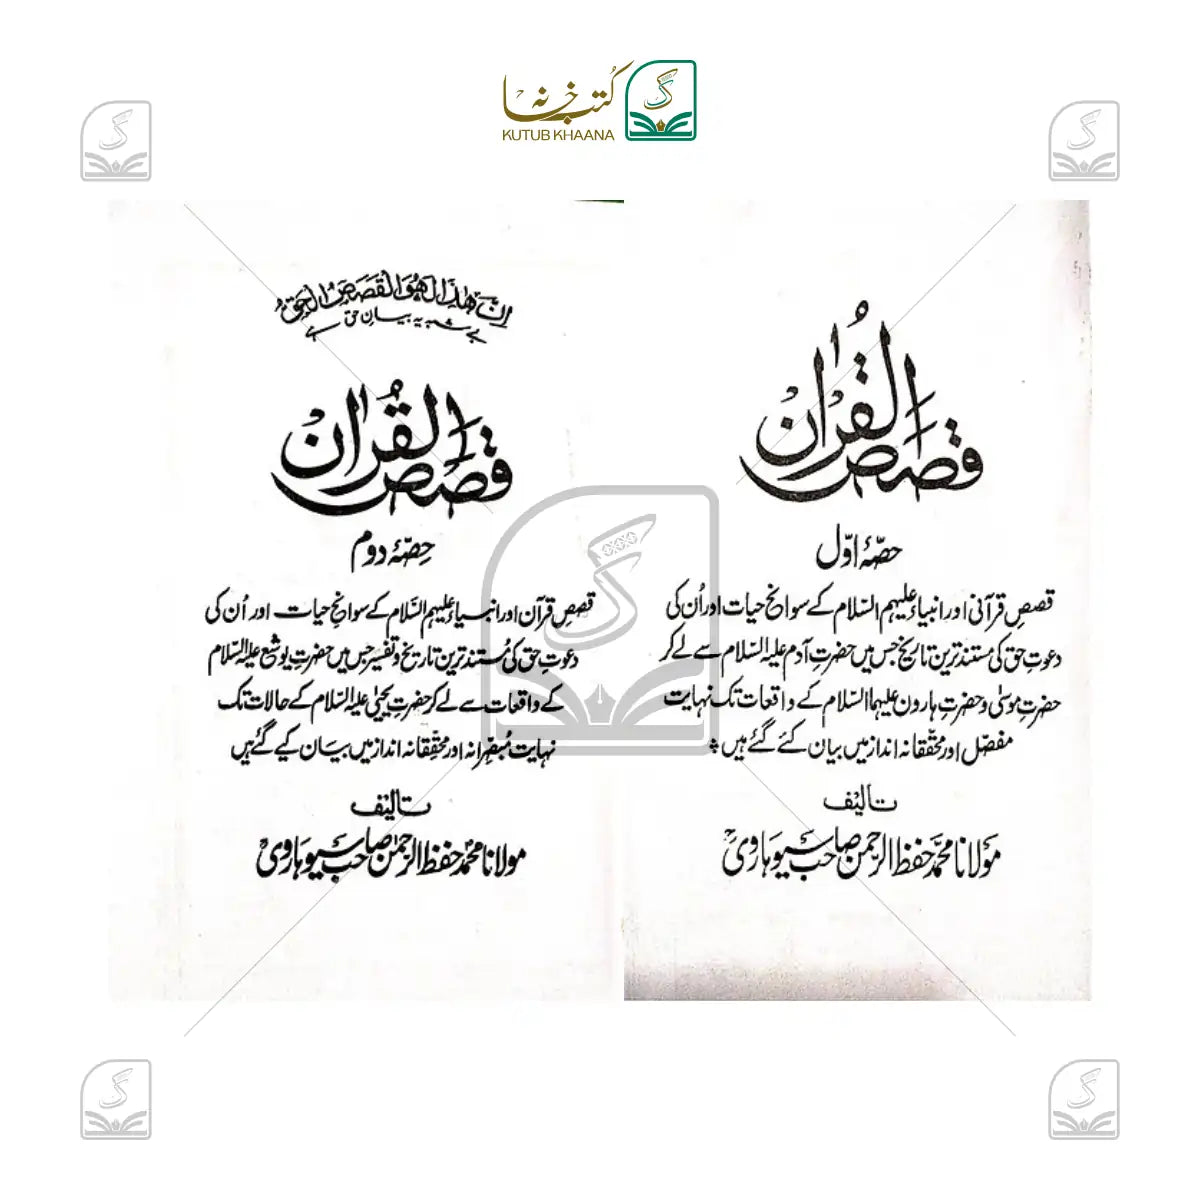 کتب خانہ
KUTUB KHAANA
قصص القرآن
حصۂ اوّل
قصصِ قرآنی اور انبیاء علیہم السّلام کے سوانحِ حیات اور اُن کی
دعوتِ حق کی مستند ترین تاریخ جس میں حضرت آدم علیہ السّلام سے لے کر
حضرت موسیٰ و حضرت ہارون علیہما السّلام کے واقعات تک نہایت
مفصّل اور محقّقانہ انداز میں بیان کئے گئے ہیں
تالیف
مَولانا محمّد حفظ الرحمٰن صاحب سیوہاروی
اِنَّ هٰذَا لَهُوَ الْقَصَصُ الْحَقُّ
بے شبہ یہ بیانِ حق ہے
قصص القرآن
حِصّۂ دوم
قصصِ قرآن اور انبیاء علیہم السّلام کے سوانحِ حیات اور اُن کی
دعوتِ حق کی مُستند ترین تاریخ و تفسیر جس میں حضرت یوشع علیہ السّلام
کے واقعات سے لے کر حضرت یحییٰ علیہ السّلام کے حالات تک
نہایت مُبصّرانہ اور محقّقانہ انداز میں بیان کیے گئے ہیں
تالیف
مولانا محمّد حفظ الرحمٰن صاحب سیوہاروی